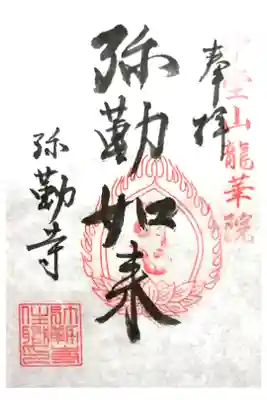 奉拝
山龍華院
弥勒如来
弥勒寺